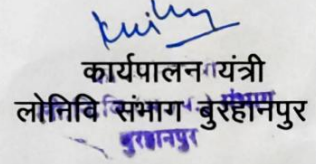 कार्यपालन यंत्री
लोनिवि संभाग बुरहानपुर
बुरहानपुर